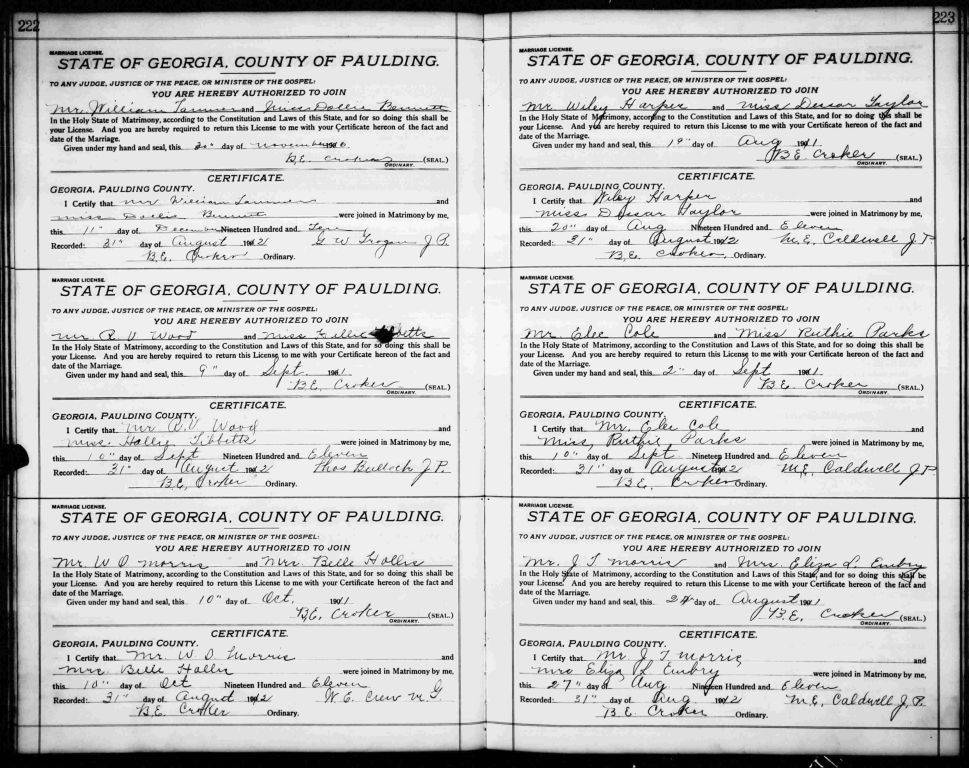 222
MARRIAGE LICENSE.
STATE OF GEORGIA, COUNTY OF PAULDING.
TO ANY JUDGE, JUSTICE OF THE PEACE, OR MINISTER OF THE GOSPEL:
YOU ARE HEREBY AUTHORIZED TO JOIN
Mr. William and Miss Dollie Bennett
In the Holy State of Matrimony, according to the Constitution and Laws of this State, and for so doing this shall be
your License. And you are hereby required to return this License to me with your Certificate hereon of the fact and
date of the Marriage.
Given under my hand and seal, this 30" day of November 190
B.E. Croker (SEAL.)
ORDINARY.
CERTIFICATE.
GEORGIA, PAULDING COUNTY.
I Certify that Mr William and
Miss Dollie Bennett were joined in Matrimony by me,
this 11" day of December Nineteen Hundred and Ten
Recorded: 31" day of August 1912 G W Trogan J.P.
B.E. Croker Ordinary.
MARRIAGE LICENSE.
STATE OF GEORGIA, COUNTY OF PAULDING.
TO ANY JUDGE, JUSTICE OF THE PEACE, OR MINISTER OF THE GOSPEL:
YOU ARE HEREBY AUTHORIZED TO JOIN
Mr R V Wood and Miss
In the Holy State of Matrimony, according to the Constitution and Laws of this State, and for so doing this shall be
your License. And you are hereby required to return this License to me with your Certificate hereon of the fact and
date of the Marriage.
Given under my hand and seal, this 9" day of Sept. 1911.
B.E. Croker (SEAL.)
ORDINARY.
CERTIFICATE.
GEORGIA, PAULDING COUNTY.
I Certify that Mr W.V Wood and
Miss. Holly Tibbetts were joined in Matrimony by me,
this 10" day of Sept Nineteen Hundred and Eleven
Recorded: 31" day of August 1912 Thos Bullock J.P.
B.E. Croker Ordinary.
MARRIAGE LICENSE.
STATE OF GEORGIA, COUNTY OF PAULDING.
TO ANY JUDGE, JUSTICE OF THE PEACE, OR MINISTER OF THE GOSPEL:
YOU ARE HEREBY AUTHORIZED TO JOIN
Mr. W O Morris and Mrs. Belle Hollis
In the Holy State of Matrimony, according to the Constitution and Laws of this State, and for so doing this shall be
your License. And you are hereby required to return this License to me with your Certificate hereon of the fact and
date of the Marriage.
Given under my hand and seal, this 10" day of Oct. 1911
B.E. Croker (SEAL.)
ORDINARY.
CERTIFICATE.
GEORGIA, PAULDING COUNTY.
I Certify that Mr. W O Morris and
Mrs. Belle Hollis were joined in Matrimony by me,
this 10" day of Oct Nineteen Hundred and Eleven
Recorded: 31" day of August 1912 W.E. Crew M.G
B.E. Croker Ordinary.
223
MARRIAGE LICENSE.
STATE OF GEORGIA, COUNTY OF PAULDING.
TO ANY JUDGE, JUSTICE OF THE PEACE, OR MINISTER OF THE GOSPEL:
YOU ARE HEREBY AUTHORIZED TO JOIN
Mr. Wiley Harper and Miss Dessar Taylor
In the Holy State of Matrimony, according to the Constitution and Laws of this State, and for so doing this shall be
your License. And you are hereby required to return this License to me with your Certificate hereon of the fact and
date of the Marriage.
Given under my hand and seal, this 19" day of Aug 1911.
B.E. Croker (SEAL.)
ORDINARY.
CERTIFICATE.
GEORGIA, PAULDING COUNTY.
I Certify that Wiley Harper and
Miss Dessar Taylor were joined in Matrimony by me,
this 20" day of Aug Nineteen Hundred and Eleven
Recorded: 31" day of August 1912 M.E. Caldwell J.P
B.E. Croker, Ordinary.
MARRIAGE LICENSE.
STATE OF GEORGIA, COUNTY OF PAULDING.
TO ANY JUDGE, JUSTICE OF THE PEACE, OR MINISTER OF THE GOSPEL:
YOU ARE HEREBY AUTHORIZED TO JOIN
Mr. Elec Cole and Miss Ruthie Parks
In the Holy State of Matrimony, according to the Constitution and Laws of this State, and for so doing this shall be
your License. And you are hereby required to return this License to me with your Certificate hereon of the fact and
date of the Marriage.
Given under my hand and seal, this 2" day of Sept 1911.
B.E. Croker (SEAL.)
ORDINARY.
CERTIFICATE.
GEORGIA, PAULDING COUNTY.
I Certify that Mr. Elec Cole and
Miss, Ruthie Parks were joined in Matrimony by me,
this 10" day of Sept Nineteen Hundred and Eleven
Recorded: 31" day of August 1912 M.E. Caldwell J.P
B.E. Croker Ordinary.
MARRIAGE LICENSE.
STATE OF GEORGIA, COUNTY OF PAULDING.
TO ANY JUDGE, JUSTICE OF THE PEACE, OR MINISTER OF THE GOSPEL:
YOU ARE HEREBY AUTHORIZED TO JOIN
Mr. J T Morris and Mrs. Eliza L. Embry
In the Holy State of Matrimony, according to the Constitution and Laws of this State, and for so doing this shall be
your License. And you are hereby required to return this License to me with your Certificate hereon of the fact and
date of the Marriage.
Given under my hand and seal, this 24" day of August 1911
B.E. Croker (SEAL.)
ORDINARY.
CERTIFICATE.
GEORGIA, PAULDING COUNTY.
I Certify that Mr J T Morris and
Mrs Eliza L Embry were joined in Matrimony by me,
this 27" day of Aug Nineteen Hundred and Eleven
Recorded: 31" day of Aug 1912 M.E, Caldwell J.P.
B.E. Croker Ordinary.